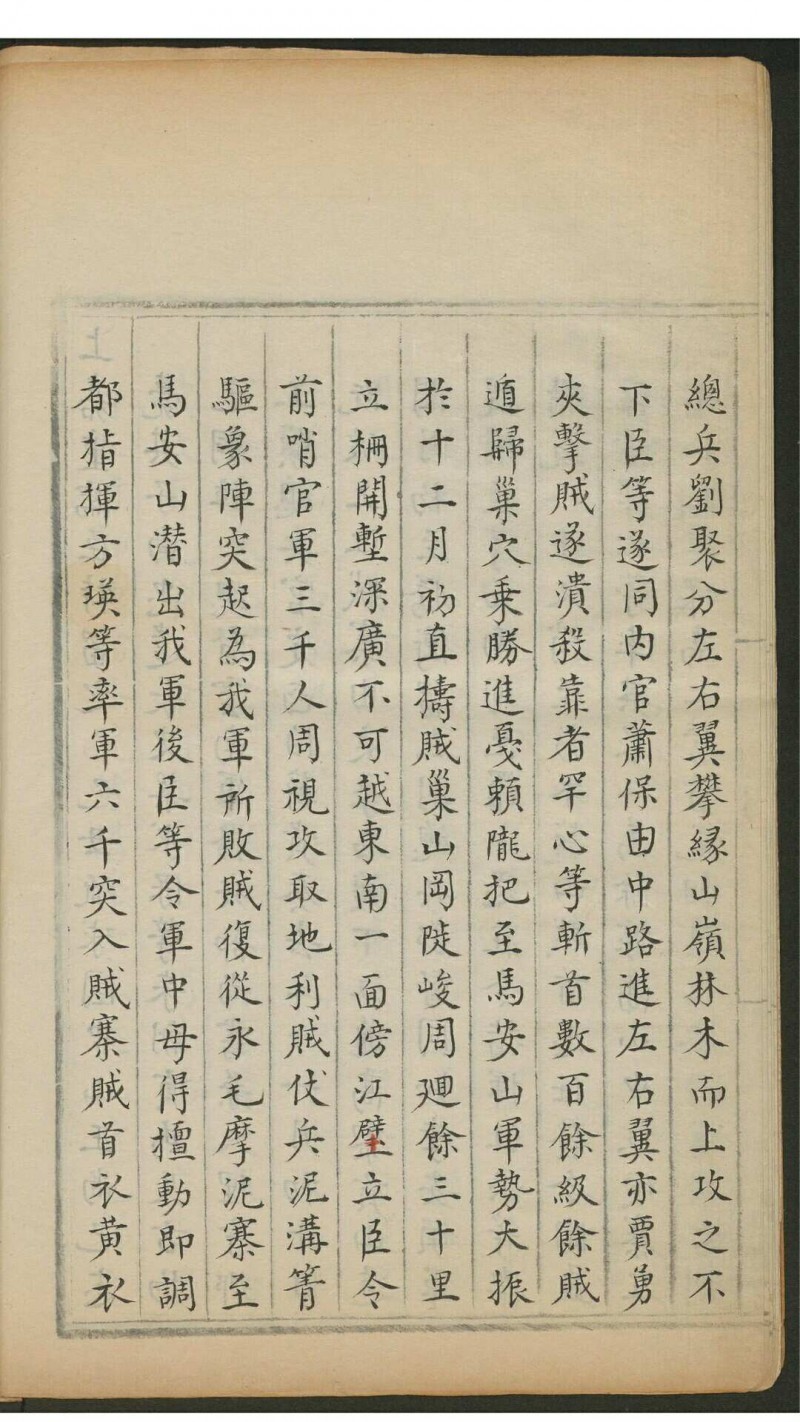 總兵劉聚分左右翼攀縁山嶺林木而上攻之不
下臣等遂同内官蕭保由中路進左右翼亦賈勇
夾擊賊遂潰殺靠者罕心等斬首數百餘級餘賊
遁歸巢穴乗勝進戞頼隴把至馬安山軍勢大振
於十二月初直擣賊巢山岡陡峻周廻餘三十里
立栅開塹深廣不可越東南一面傍江壁立臣令
前哨官軍三千人周視攻取地利賊伏兵泥溝箐
驅象陣突起為我軍所敗賊復從永毛摩泥寨至
馬安山潜出我軍後臣等令軍中毋得擅動即調
都指揮方瑛等率軍六千突入賊寨賊首衣黄衣